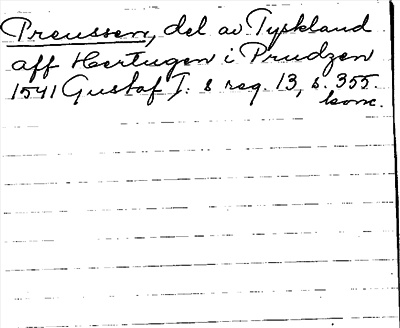 Preussen, del av Tyskland
aff Hertugen i Prudzen
1541 Gustaf I: s reg. 13, s. 355.
konc.